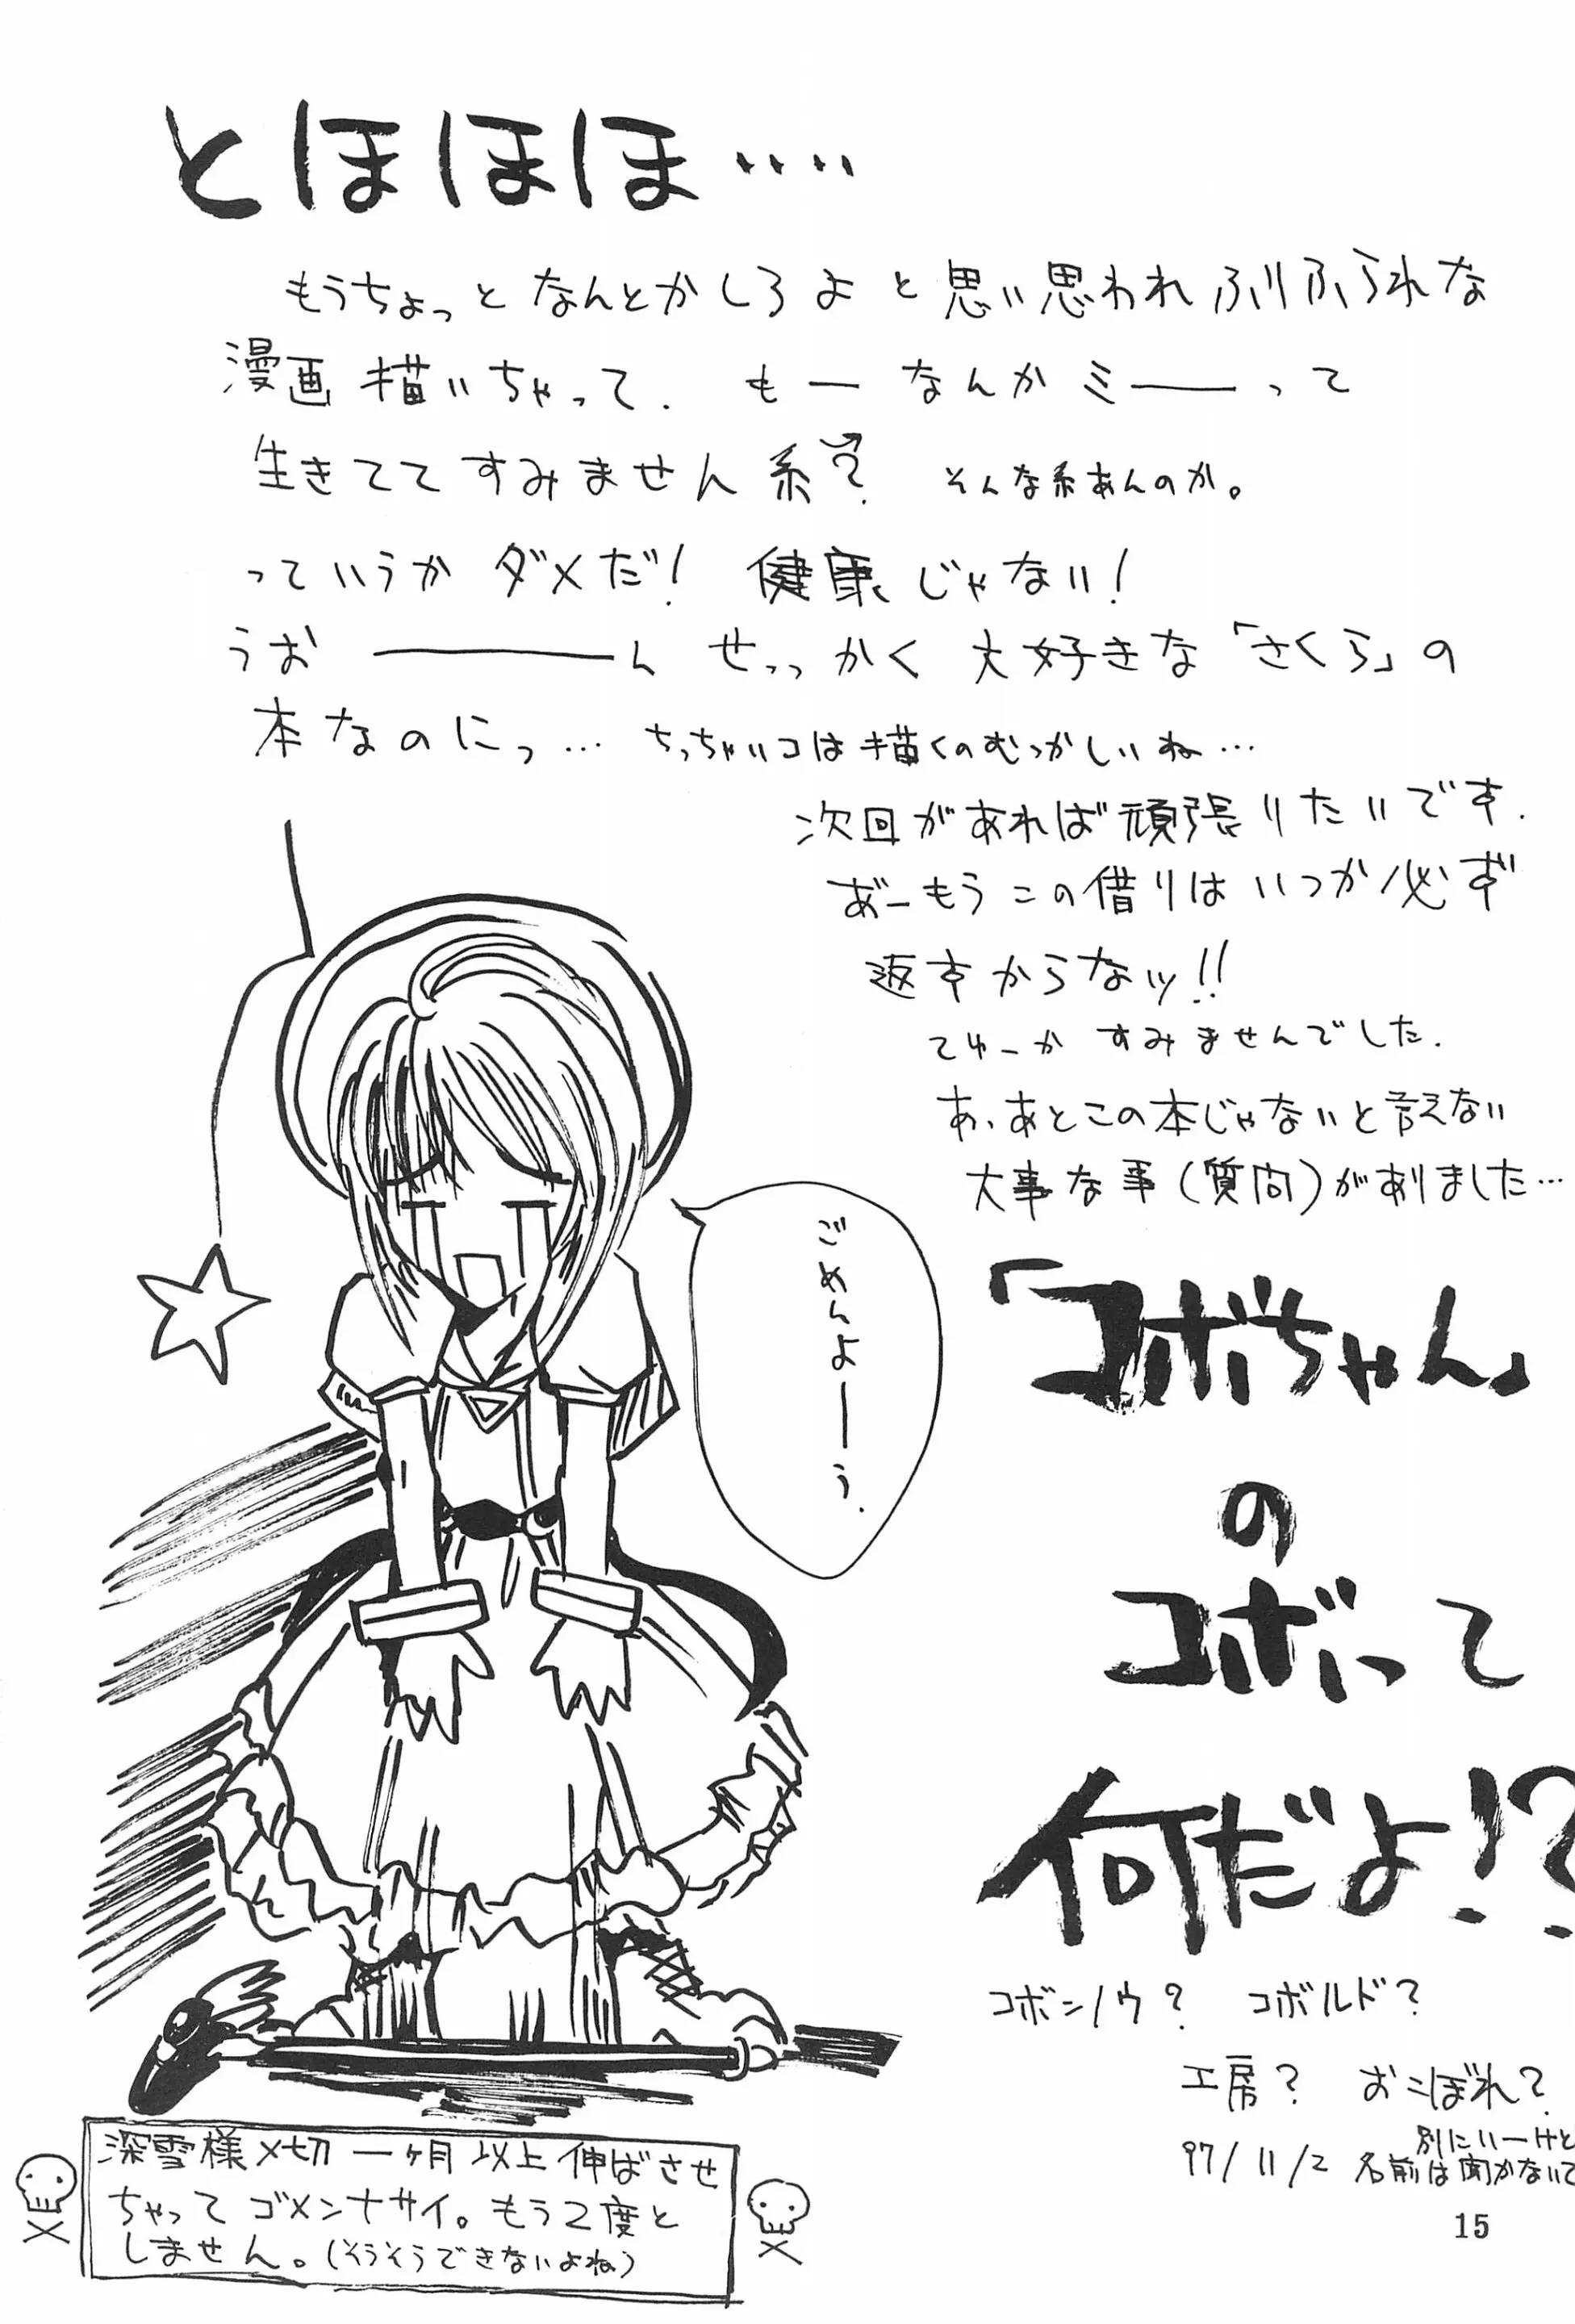 とほほほ‥‥
もうちょっとなんとかしろよと思い思われふりふられな
漫画描いちゃって. もー なんかミーって
生きててすみません系? そんな系あんのか。
っていうか ダメだ! 健康じゃない!
うおーーん せっっかく 大好きな「さくら」の
本なのにっ… ちっちゃいコは描くのむつかしいね…
次回があれば頑張りたいです.
あ゛ーもうこの借りはいつか必ず
返すからなッ!!
てゆーか すみませんでした.
あ、あとこの本じゃないと言えない
大事な事(質問)がありました…
ごめんよーう.
「コボちゃん」
の
コボって
何だよ!?
コボンノウ? コボルド?
工房? おこぼれ?
別にいーけど
97/11/2 名前は聞かないで
深雪様〆切一ヶ月以上伸ばさせ
ちゃってゴメンナサイ。もう2度と
しません。(そうそうできないよね)
15